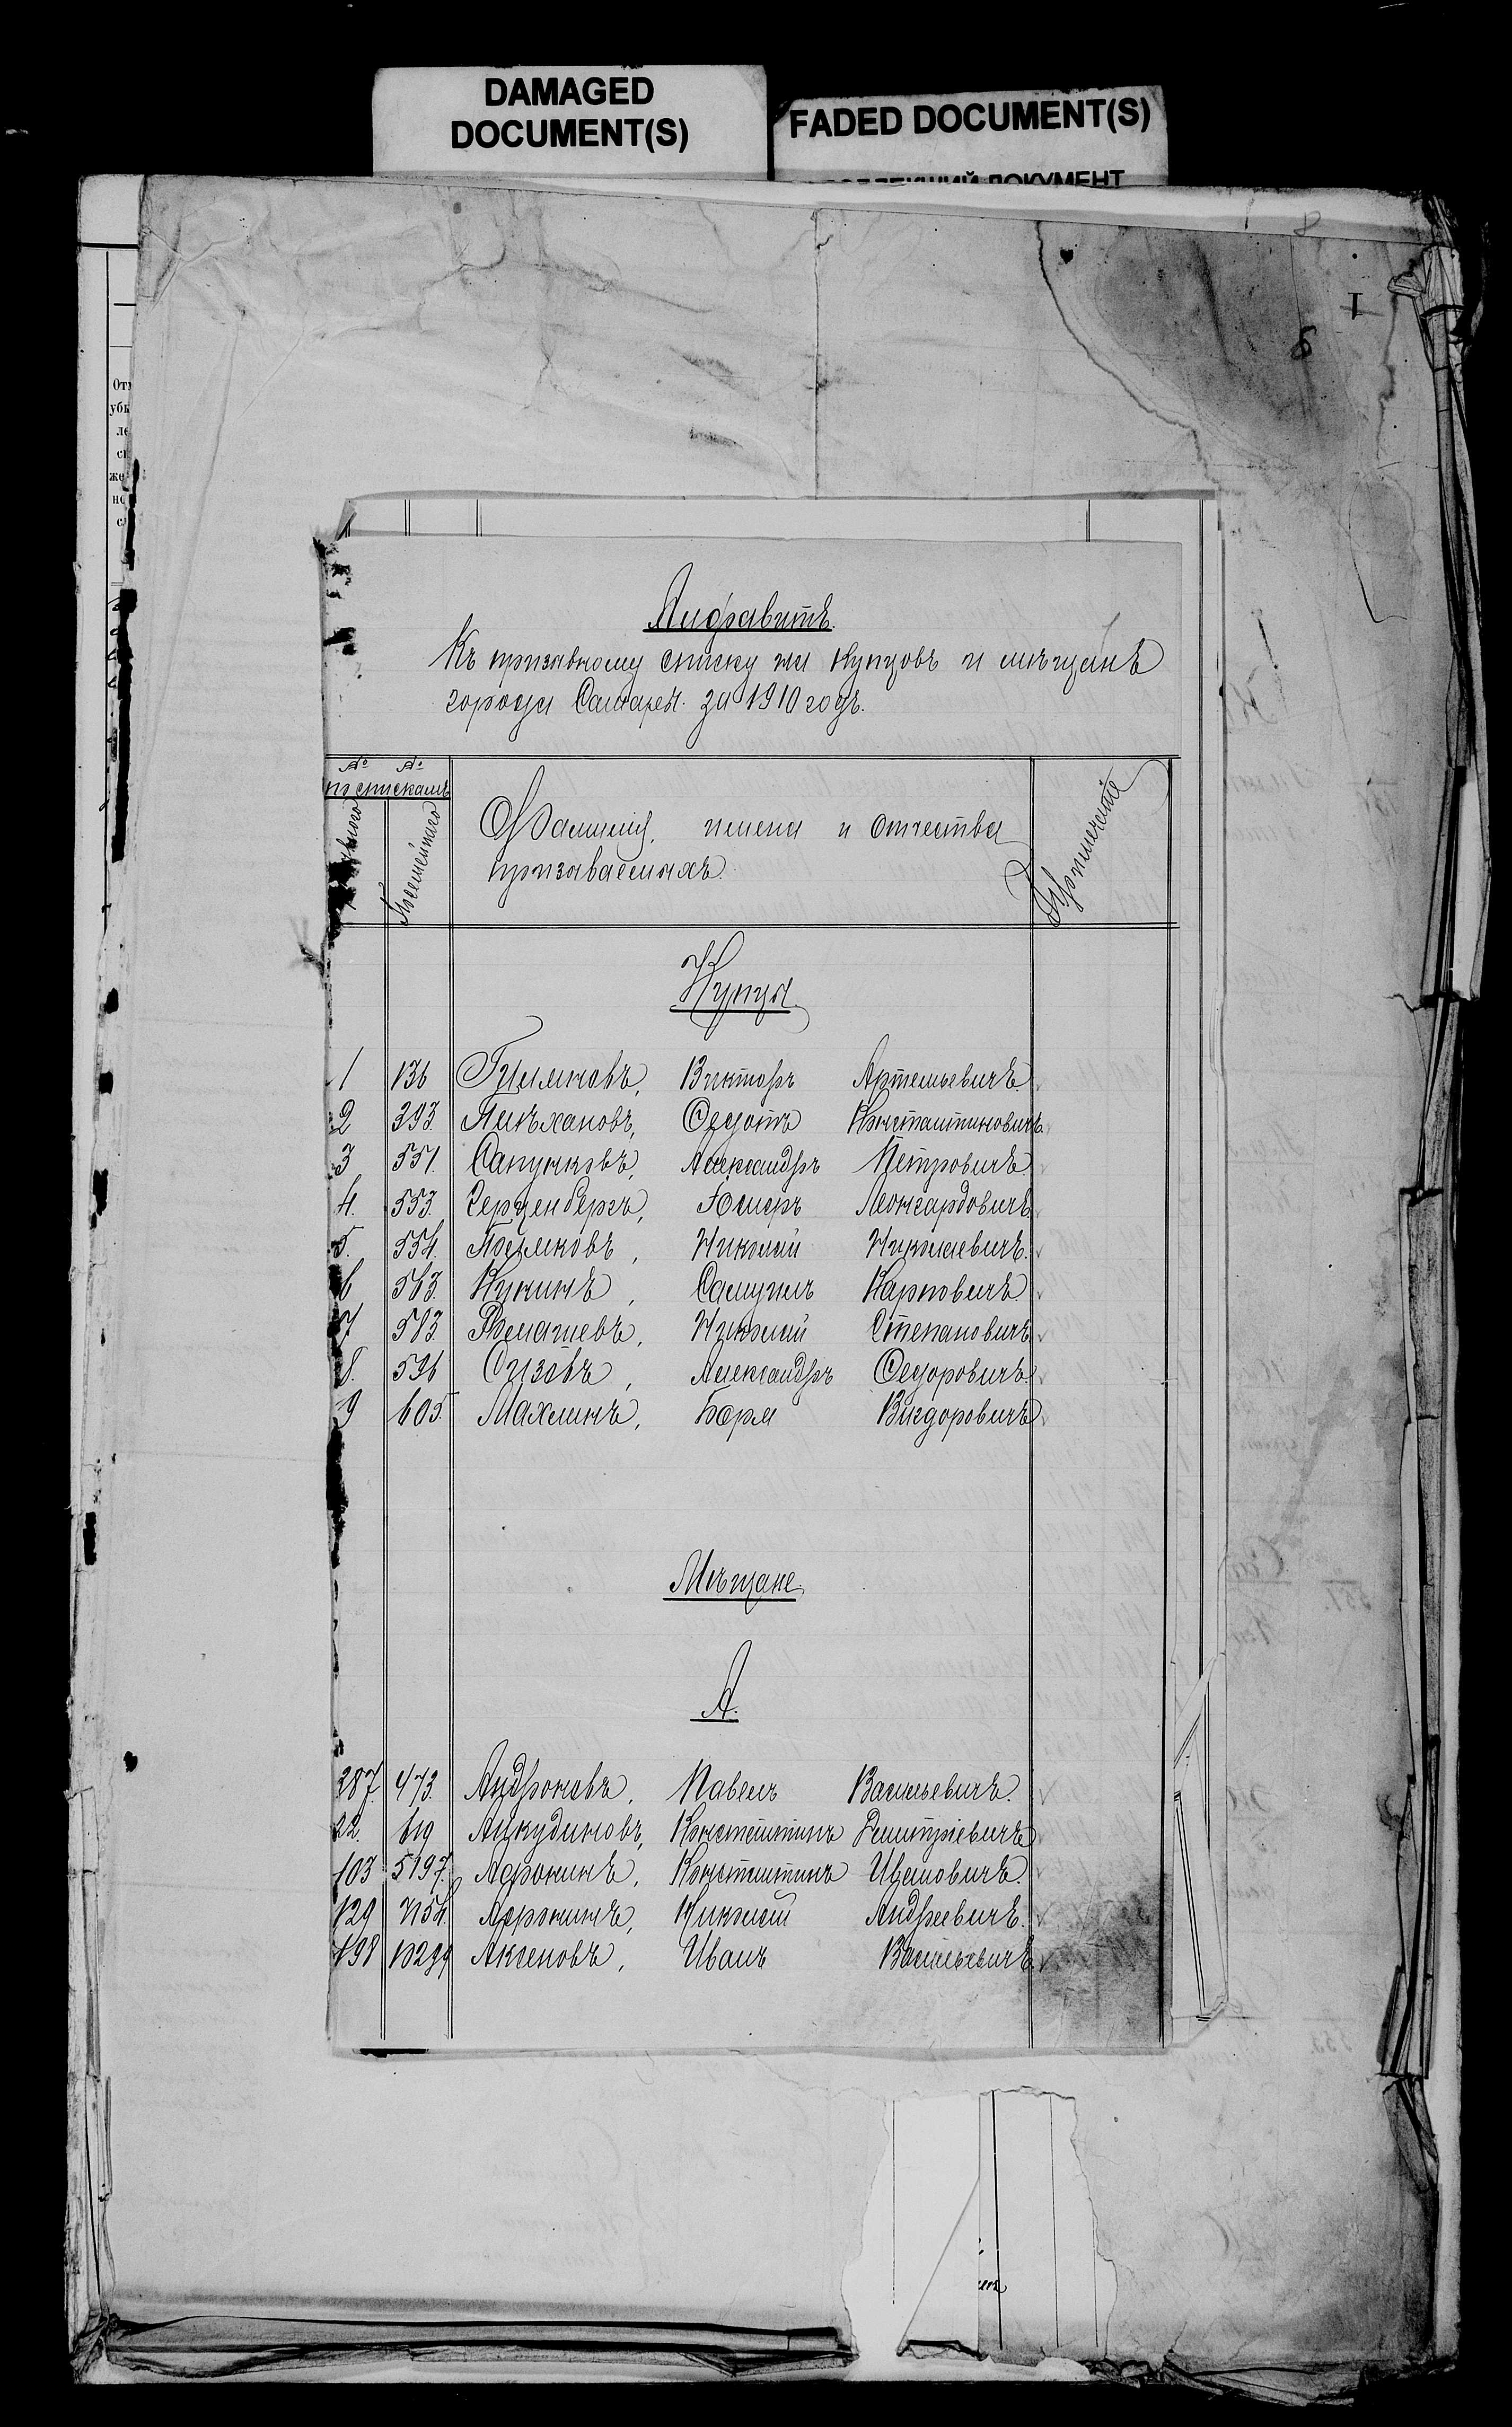 DAMAGED
DOCUMENT(S)
FADED DOCUMENT(S)
Алфавитъ
Къ призывному списку на Купцовъ и мѣщанъ
города Самары за 1910 годъ.
№ №
по спискамъ
Посемейнаго
Фамилія, имена и отчества
призываемыхъ
Примѣчаніе
Купцы
1 136 Виктор Артемьевичъ
2 393 Плѣхановъ, Федотъ Константиновичъ
3 551. Сапунковъ, Александръ Петровичъ
4. 553. Герценбергъ, Леонгардовичъ
5. 554. Николай Николаевичъ
6 563. Кунинъ, Самуилъ Карповичъ
7 583. Ромашевъ, Николай Степановичъ
8. 596 Сизовъ, Александръ Федоровичъ
9 605. Махлинъ, Борис
Мѣщане
А.
287 473. Андроновъ, Павелъ Васильевичъ.
22. 619 Анкудиновъ, Константинъ Дмитріевичъ
103 5197. Афонинъ, Константинъ Ивановичъ.
129 7154. Афонинъ, Николай Андреевичъ.
198 Аксеновъ, Иванъ Васильевичъ.